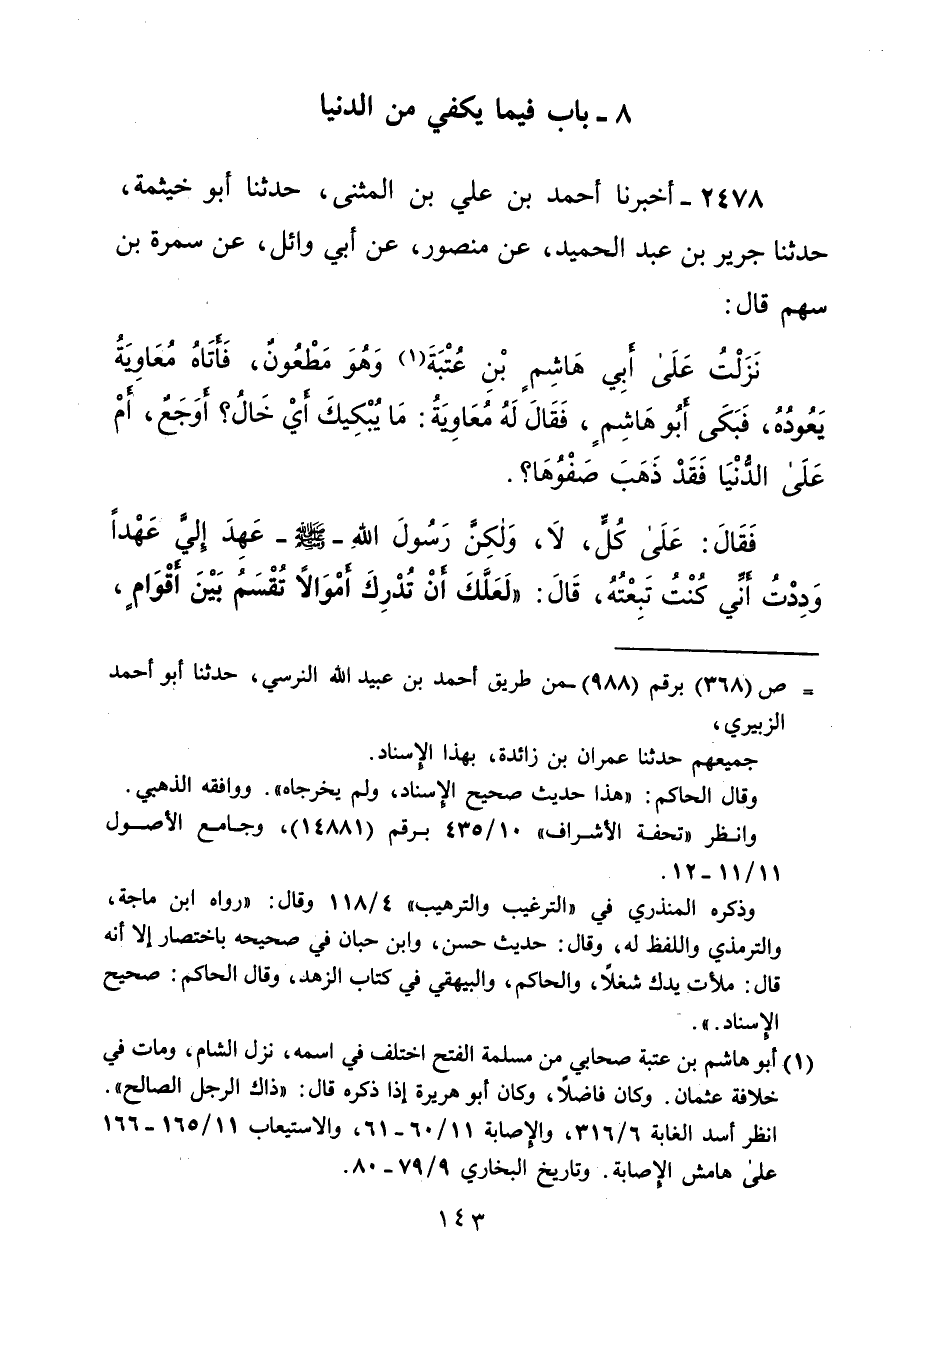 ٨ - باب فيما يكفي من الدنيا
٢٤٧٨ - أخبرنا أحمد بن علي بن المثنى، حدثنا أبو خيثمة،
حدثنا جرير بن عبد الحميد، عن منصور، عن أبي وائل، عن سمرة بن
سهم قال:
نَزَلْتُ عَلَىٰ أَبِي هَاشِمِ بْنِ عُتْبَةَ(١) وَهُوَ مَطْعُونٌ، فَأَتَاهُ مُعَاوِيَةُ
يَعُودُهُ، فَبَكَى أَبُو هَاشِمٍ، فَقَالَ لَهُ مُعَاوِيَةُ: مَا يُبْكِيكَ أَيْ خَالُ؟ أَوَجَعٌ، أَمْ
عَلَىٰ الدُّنْيَا فَقَدْ ذَهَبَ صَفْوُهَا؟.
فَقَالَ: عَلَىٰ كُلٍّ، لَا، وَلٰكِنَّ رَسُولَ اللهِ - ﷺ - عَهِدَ إِلَيَّ عَهْداً
وَدِدْتُ أَنِّي كُنْتُ تَبِعْتُهُ، قَالَ: «لَعَلَّكَ أَنْ تُدْرِكَ أَمْوَالًا تُقْسَمُ بَيْنَ أَقْوَامٍ،
= ص (٣٦٨) برقم (٩٨٨) - من طريق أحمد بن عبيد الله النرسي، حدثنا أبو أحمد
الزبيري،
جميعهم حدثنا عمران بن زائدة، بهذا الإسناد.
وقال الحاكم: «هذا حديث صحيح الإسناد، ولم يخرجاه». ووافقه الذهبي.
وانظر «تحفة الأشراف» ٤٣٥/١٠ برقم (١٤٨٨١)، وجامع الأصول
١١/١١ - ١٢.
وذكره المنذري في «الترغيب والترهيب» ١١٨/٤ وقال: «رواه ابن ماجة،
والترمذي واللفظ له، وقال: حديث حسن، وابن حبان في صحيحه باختصار إلا أنه
قال: ملأت يدك شغلاً، والحاكم، والبيهقي في كتاب الزهد، وقال الحاكم: صحيح
الإسناد.».
(١) أبو هاشم بن عتبة صحابي من مسلمة الفتح اختلف في اسمه، نزل الشام، ومات في
خلافة عثمان. وكان فاضلًا، وكان أبو هريرة إذا ذكره قال: «ذاك الرجل الصالح».
انظر أسد الغابة ٣١٦/٦، والإصابة ٦٠/١١ - ٦١، والاستيعاب ١٦٥/١١ - ١٦٦
علىٰ هامش الإصابة. وتاريخ البخاري ٧٩/٩ - ٨٠.
١٤٣